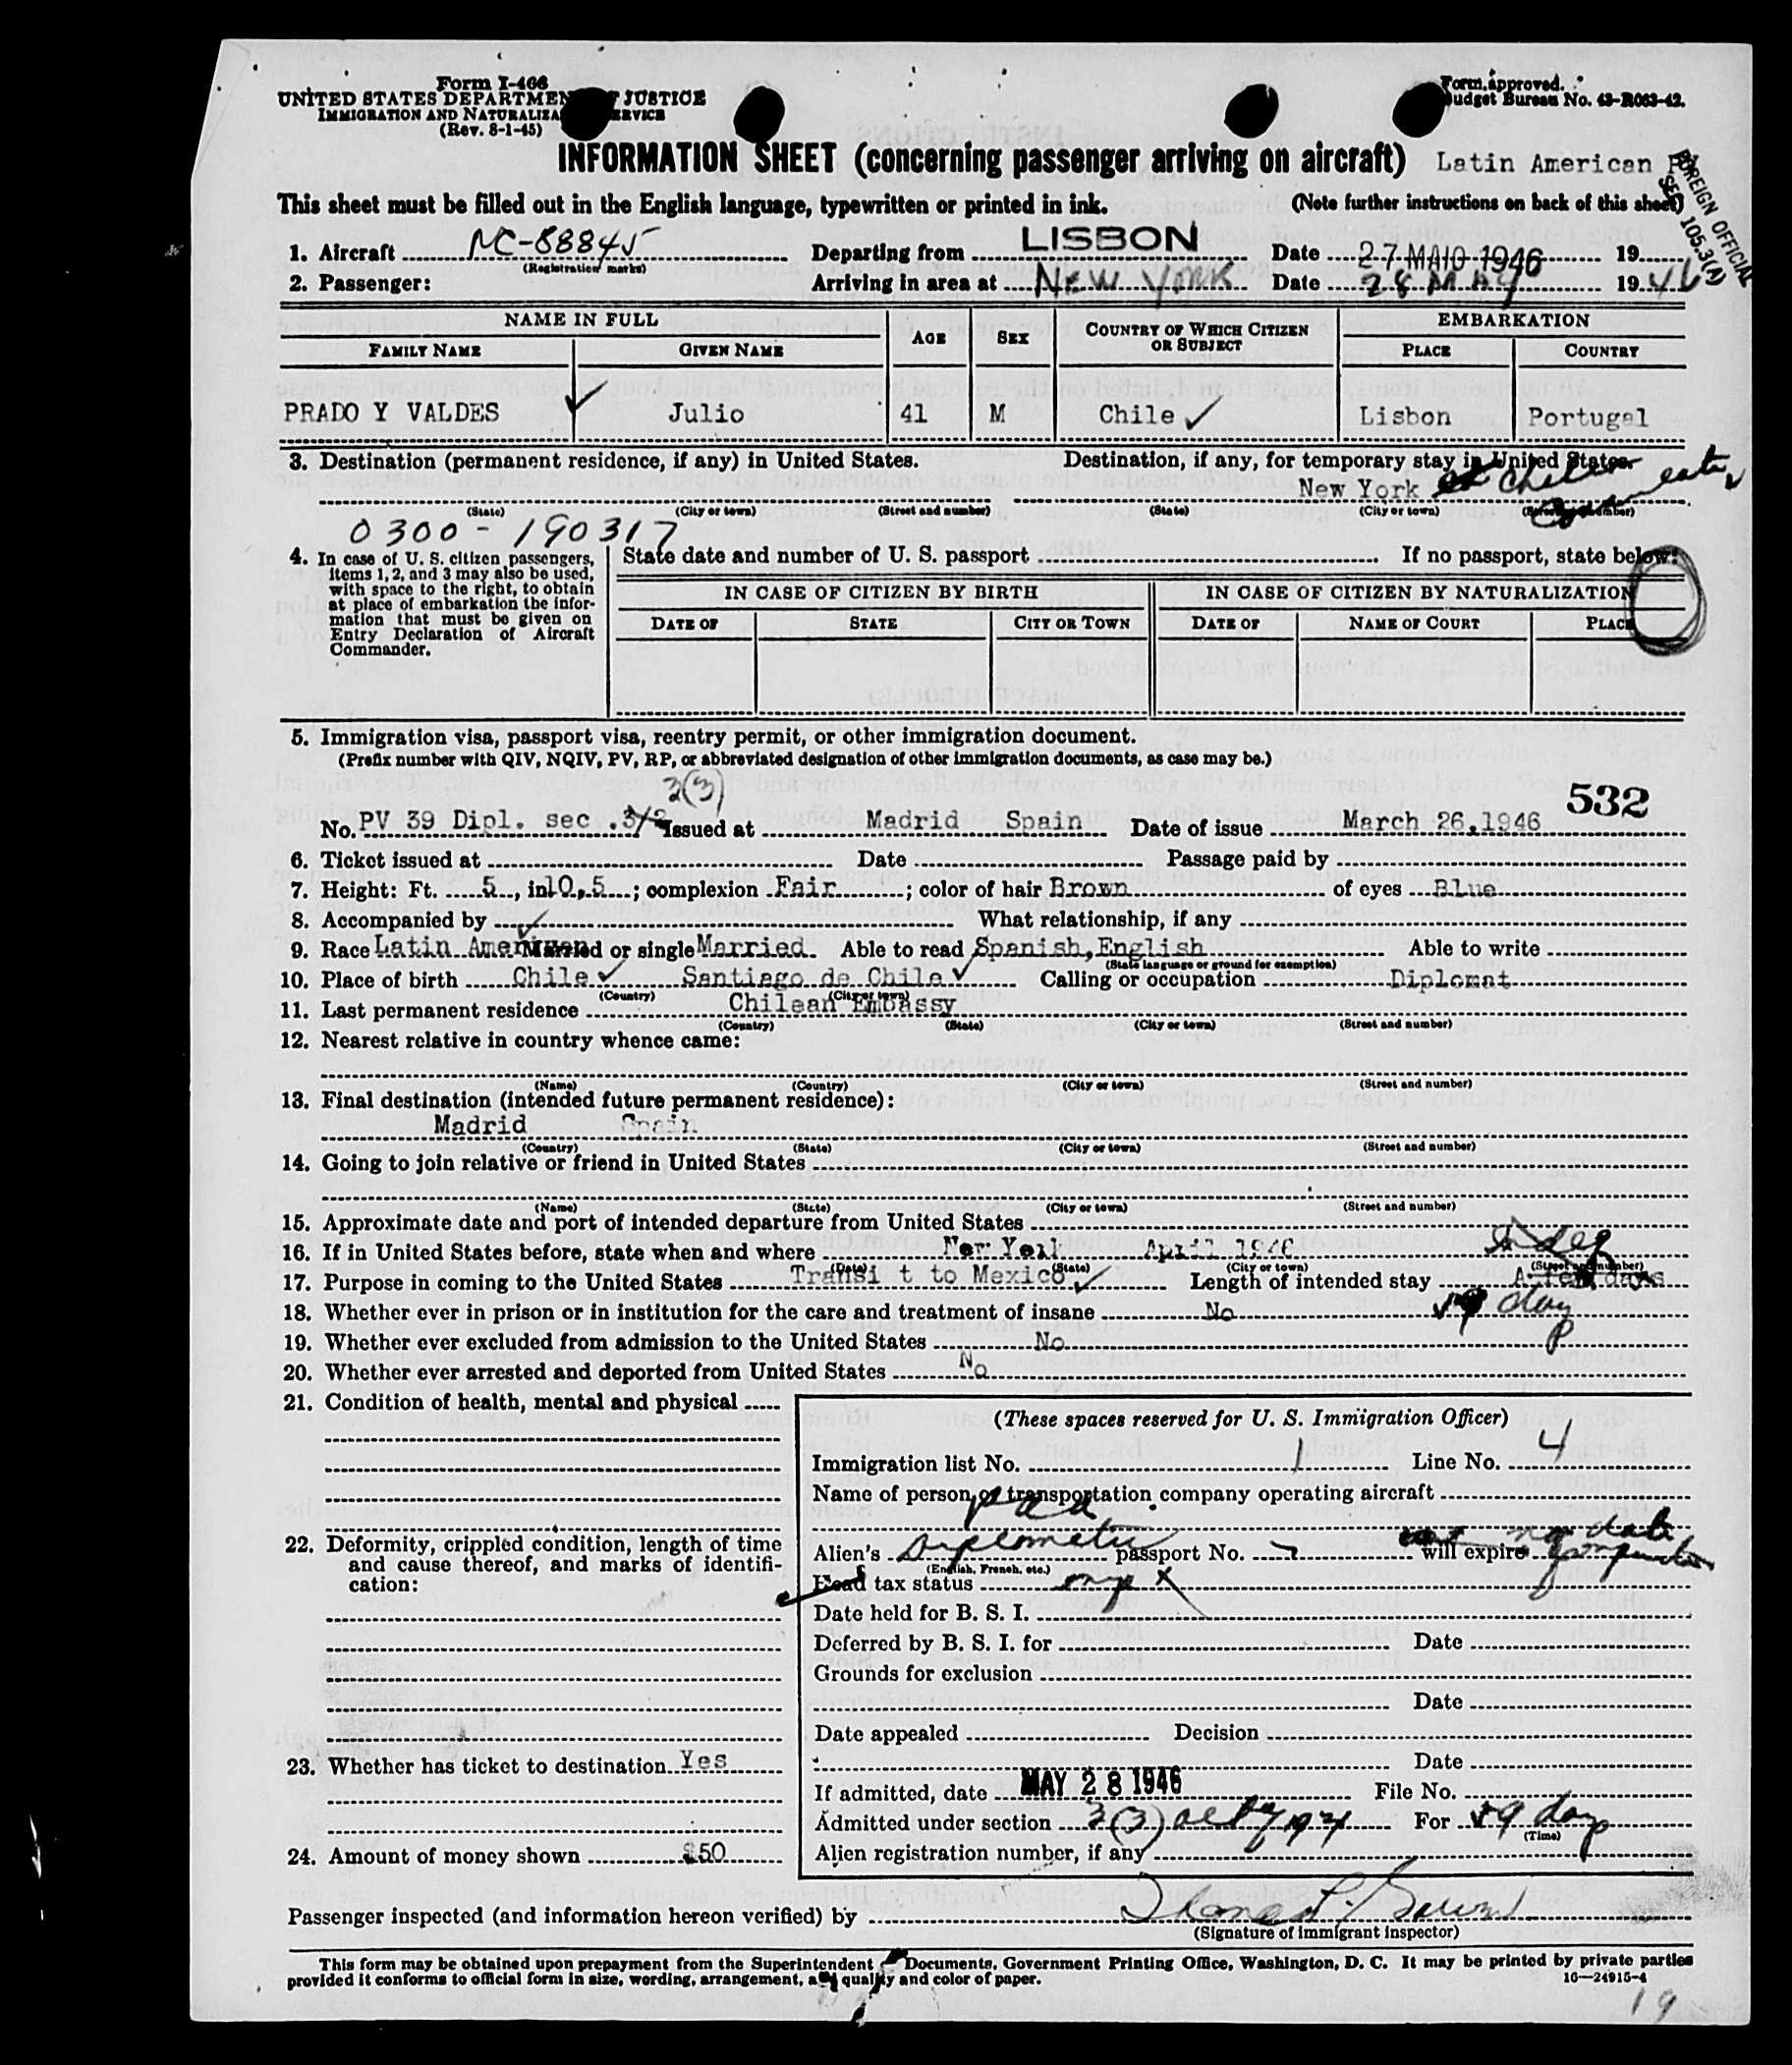 Form I-466
UNITED STATES DEPARTMENT JUSTICE
IMMIGRATION AND NATURALIZA ERVICE
(Rev. 8-1-45)
Form approved.
Budget Bureau No. 43-R063-42.
INFORMATION SHEET (concerning passenger arriving on aircraft) Latin American
FOREIGN OFFICIAL
SEC 105.3(A)
This sheet must be filled out in the English language, typewritten or printed in ink. (Note further instructions on back of this sheet)
1. Aircraft NC-88845 Departing from LISBON Date 27 MAIO 1946 19
(Registration marks)
2. Passenger: Arriving in area at NEW YORK Date 28 MAY 1946
NAME IN FULL AGE SEX COUNTRY OF WHICH CITIZEN OR SUBJECT EMBARKATION
FAMILY NAME GIVEN NAME PLACE COUNTRY
PRADO Y VALDES Julio 41 M Chile Lisbon Portugal
3. Destination (permanent residence, if any) in United States. Destination, if any, for temporary stay in United States.
New York Chile
(State) (City or town) (Street and number) (State) (City or town) (Street and number)
0300-190317
4. In case of U. S. citizen passengers, items 1, 2, and 3 may also be used, with space to the right, to obtain at place of embarkation the information that must be given on Entry Declaration of Aircraft Commander.
State date and number of U. S. passport If no passport, state below:
IN CASE OF CITIZEN BY BIRTH IN CASE OF CITIZEN BY NATURALIZATION
DATE OF STATE CITY OR TOWN DATE OF NAME OF COURT PLACE
5. Immigration visa, passport visa, reentry permit, or other immigration document.
(Prefix number with QIV, NQIV, PV, RP, or abbreviated designation of other immigration documents, as case may be.)
3(3) 532
No. PV 39 Dipl. sec. 3/2 Issued at Madrid Spain Date of issue March 26,1946
6. Ticket issued at Date Passage paid by
7. Height: Ft. 5, in 10,5; complexion Fair; color of hair Brown of eyes Blue
8. Accompanied by What relationship, if any
9. Race Latin American Married or single Married Able to read Spanish, English Able to write
(State language or ground for exemption)
10. Place of birth Chile Santiago de Chile Calling or occupation Diplomat
(Country) (City or town)
11. Last permanent residence Chilean Embassy
(Country) (State) (City or town) (Street and number)
12. Nearest relative in country whence came:
(Name) (Country) (City or town) (Street and number)
13. Final destination (intended future permanent residence):
Madrid Spain
(Country) (State) (City or town) (Street and number)
14. Going to join relative or friend in United States
(Name) (State) (City or town) (Street and number)
15. Approximate date and port of intended departure from United States
16. If in United States before, state when and where New York April 1946
(Date) (State) (City or town) (Street and number)
17. Purpose in coming to the United States Transi t to Mexico Length of intended stay A few days
18. Whether ever in prison or in institution for the care and treatment of insane No
19. Whether ever excluded from admission to the United States No
20. Whether ever arrested and deported from United States No
21. Condition of health, mental and physical
22. Deformity, crippled condition, length of time and cause thereof, and marks of identification:
23. Whether has ticket to destination Yes
24. Amount of money shown $50
(These spaces reserved for U. S. Immigration Officer)
Immigration list No. 1 Line No. 4
Name of person or transportation company operating aircraft
P a a
Alien's Diplomatic passport No. will expire no date
(English, French, etc.)
Head tax status
Date held for B. S. I.
Deferred by B. S. I. for Date
Grounds for exclusion
Date
Date appealed Decision
Date
If admitted, date MAY 28 1946 File No.
Admitted under section 3(3) act of 1924 For 29 days
(Time)
Alien registration number, if any
Passenger inspected (and information hereon verified) by
(Signature of immigrant inspector)
This form may be obtained upon prepayment from the Superintendent Documents, Government Printing Office, Washington, D. C. It may be printed by private parties
provided it conforms to official form in size, wording, arrangement, and quality and color of paper.
16—24915-4
19